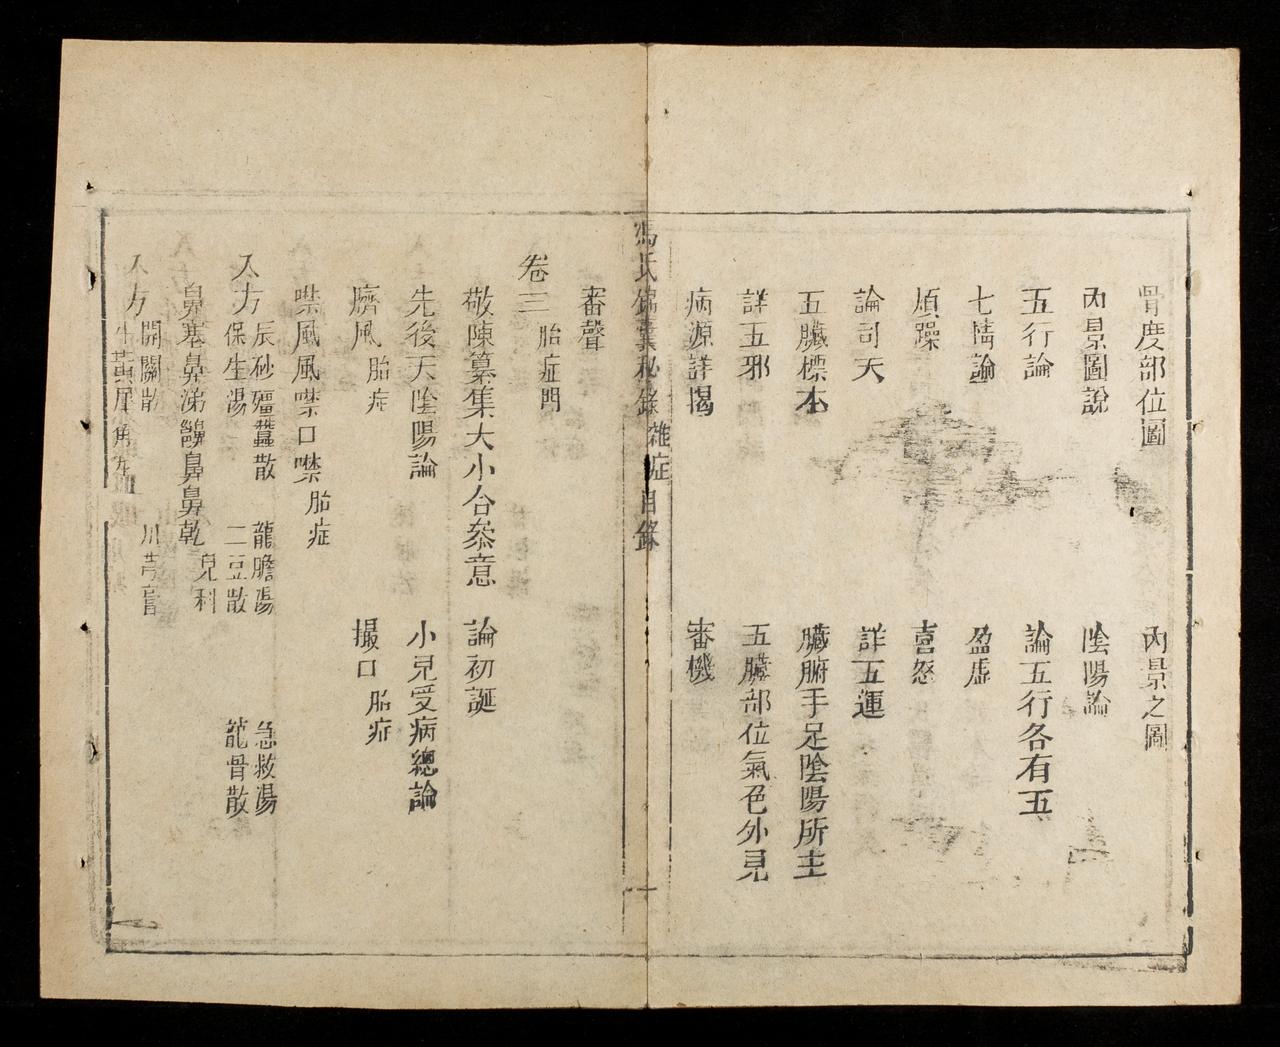 骨度部位圖　內景之圖
內景圖說　陰陽論
五行論　論五行各有五
七情論　盈虛
煩躁　喜怒
論司天　詳五運
五臟標本　臟腑手足陰陽所主
詳五邪　五臟部位氣色外見
病源詳揭　審機
馮氏錦囊秘錄　雜症目錄　一
審聲
卷三　胎症門
敬陳纂集大小合叅意　論初誕
先後天陰陽論　小兒受病總論
臍風　胎症　撮口　胎症
噤風風噤口噤　胎症
入方　辰砂殭蠶散　龍膽湯　急救湯
保生湯　二豆散　龍骨散
鼻塞鼻涕鼻鼻乾　兒科
入方　開關散　川芎膏
牛黃犀角丸